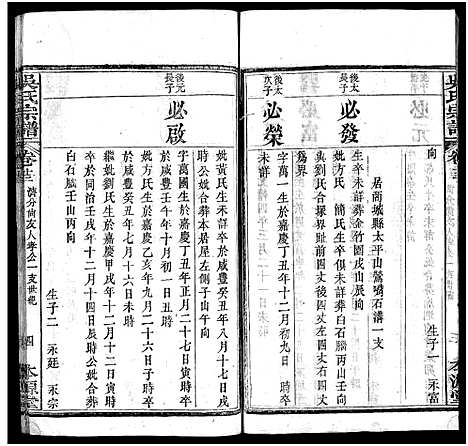 吳氏宗譜
卷三
向
生子一 永富
居商城縣太平山鶯嘴石溝一支
後太長子
必發
生卒未詳葬金竹園戌山辰向
妣方氏 簡氏生卒俱未詳葬白石腦丙山壬向
與劉氏合塚界趾劉墳後四丈前四丈左右四丈
為界
後太次子
必榮
字萬一生於嘉慶丁丑年十二月初九日 時卒
未詳
後元長子
必啟
妣黃氏生未詳卒於咸豐癸丑年八月十六日戌
時公妣合葬本居屋左側子山午向
字萬國生於嘉慶丁丑年正月二十七日寅時卒
於咸豐壬子年十月初一日丑時
妣方氏生於嘉慶乙亥年九月二十六日子時卒
於咸豐癸丑年七月十六日未時
繼妣劉氏生於嘉慶甲戌年十二月十二日寅時
卒於同治壬戌年十二月十四日辰時公妣合葬
白石腦壬山丙向
生子二 永廷 永宗
吳氏宗譜
濟分向友人孝公一支世紀
四
本源堂